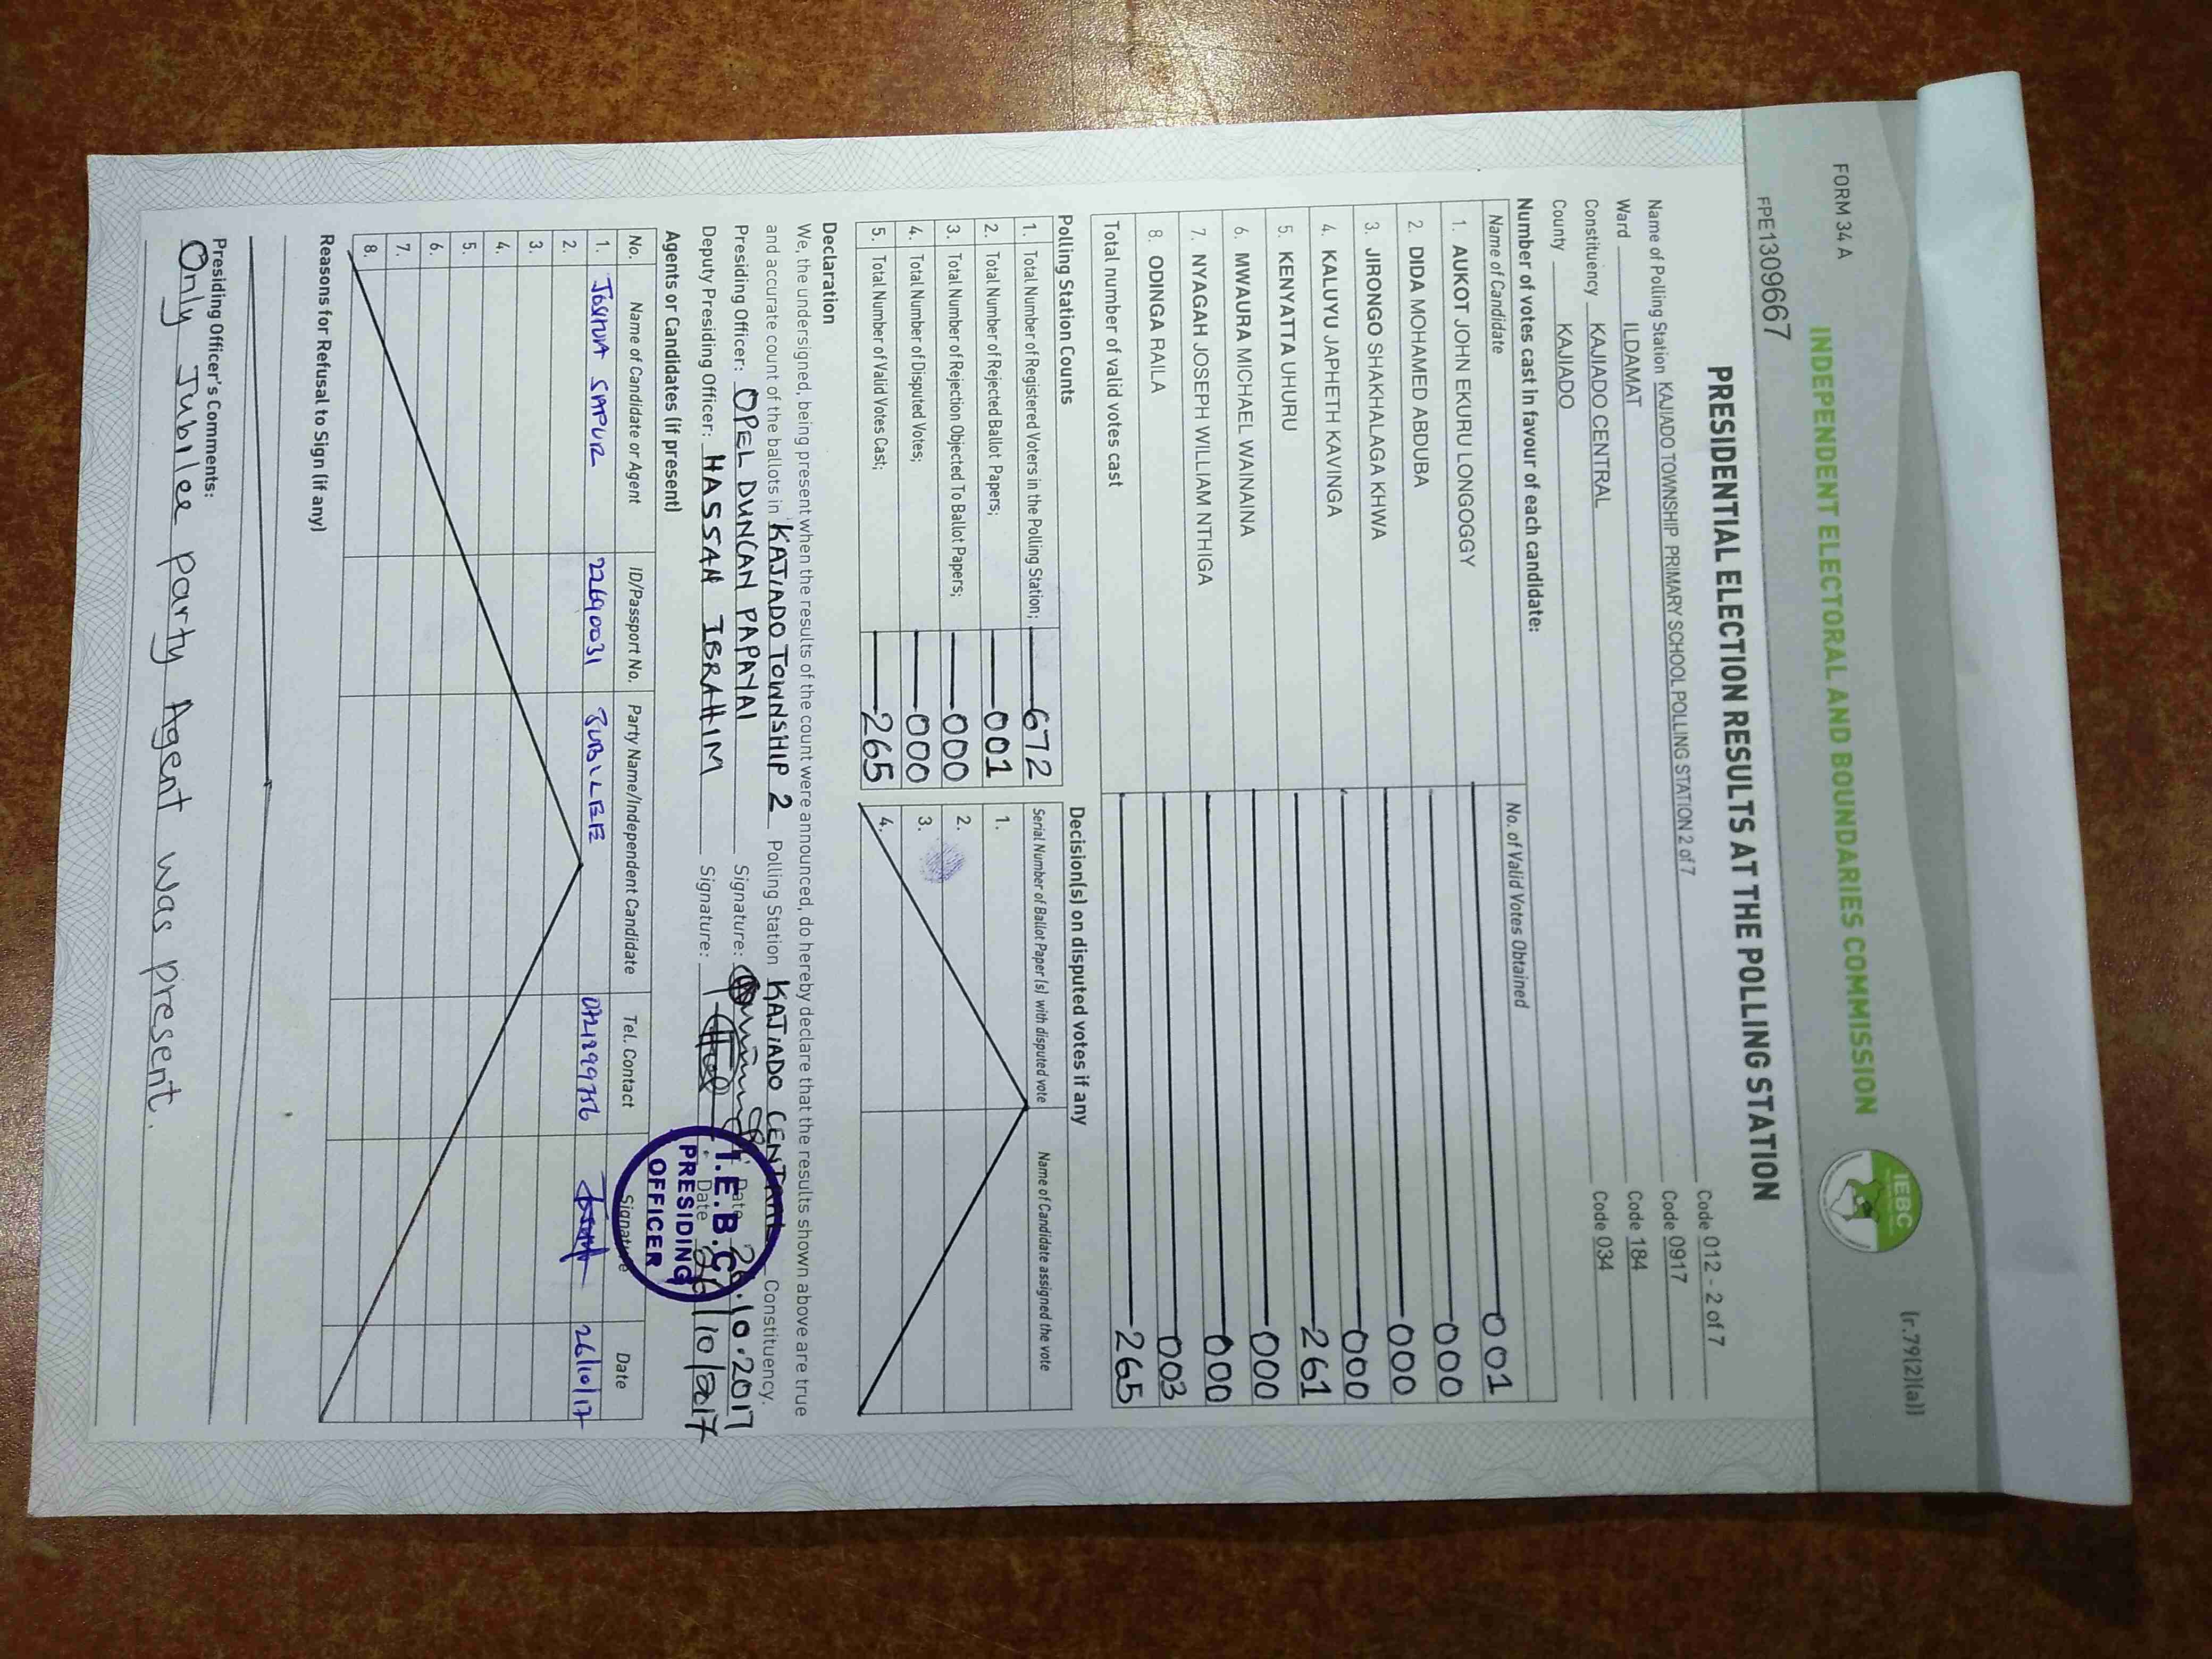 FORM 34 A
(r.79(2)(a))
INDEPENDENT ELECTORAL AND BOUNDARIES COMMISSION
IEBC
FPE1309667
PRESIDENTIAL ELECTION RESULTS AT THE POLLING STATION
Name of Polling Station KAJIADO TOWNSHIP PRIMARY SCHOOL POLLING STATION 2 of 7 Code 012 - 2 of 7
Ward ILDAMAT Code 0917
Constituency KAJIADO CENTRAL Code 184
County KAJIADO Code 034
Number of votes cast in favour of each candidate:
Name of Candidate No. of Valid Votes Obtained
1. AUKOT JOHN EKURU LONGOGGY 001
2. DIDA MOHAMED ABDUBA 000
3. JIRONGO SHAKHALAGA KHWA 000
4. KALUYU JAPHETH KAVINGA 000
5. KENYATTA UHURU 261
6. MWAURA MICHAEL WAINAINA 000
7. NYAGAH JOSEPH WILLIAM NTHIGA 000
8. ODINGA RAILA 003
Total number of valid votes cast 265
Polling Station Counts
1. Total Number of Registered Voters in the Polling Station; 672
2. Total Number of Rejected Ballot Papers; 001
3. Total Number of Rejection Objected To Ballot Papers; 000
4. Total Number of Disputed Votes; 000
5. Total Number of Valid Votes Cast; 265
Decision(s) on disputed votes if any
Serial Number of Ballot Paper (s) with disputed vote Name of Candidate assigned the vote
1.
2.
3.
4.
Declaration
We, the undersigned, being present when the results of the count were announced, do hereby declare that the results shown above are true
and accurate count of the ballots in KAJIADO TOWNSHIP 2 Polling Station KAJIADO CENTRAL Constituency.
Presiding Officer: OPEL DUNCAN PAPAYAI Signature: Date 26.10.2017
Deputy Presiding Officer: HASSAN IBRAHIM Signature: Date 26/10/2017
I.E.B.C
PRESIDING
OFFICER
Agents or Candidates (if present)
No. Name of Candidate or Agent ID/Passport No. Party Name/Independent Candidate Tel. Contact Signature Date
1. JOSHUA 22690031 JUBILEE 26/10/17
2.
3.
4.
5.
6.
7.
8.
Reasons for Refusal to Sign (if any)
Presiding Officer's Comments:
Only Jubilee party Agent was present.